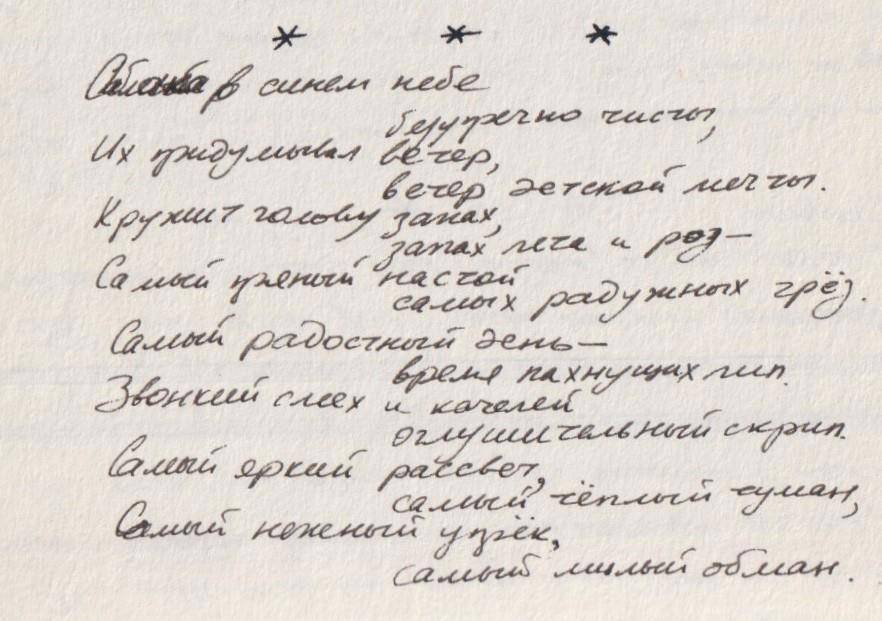 * * *
Облака в синем небе
безупречно чисты,
Их придумывал вечер,
вечер детской мечты.
Кружит голову запах,
запах лета и роз –
Самый пряный настой
самых радужных грёз.
Самый радостный день –
время пахнущих лип.
Звонкий смех и качелей
оглушительный скрип.
Самый яркий рассвет,
самый тёплый туман,
Самый нежный упрёк,
самый милый обман.